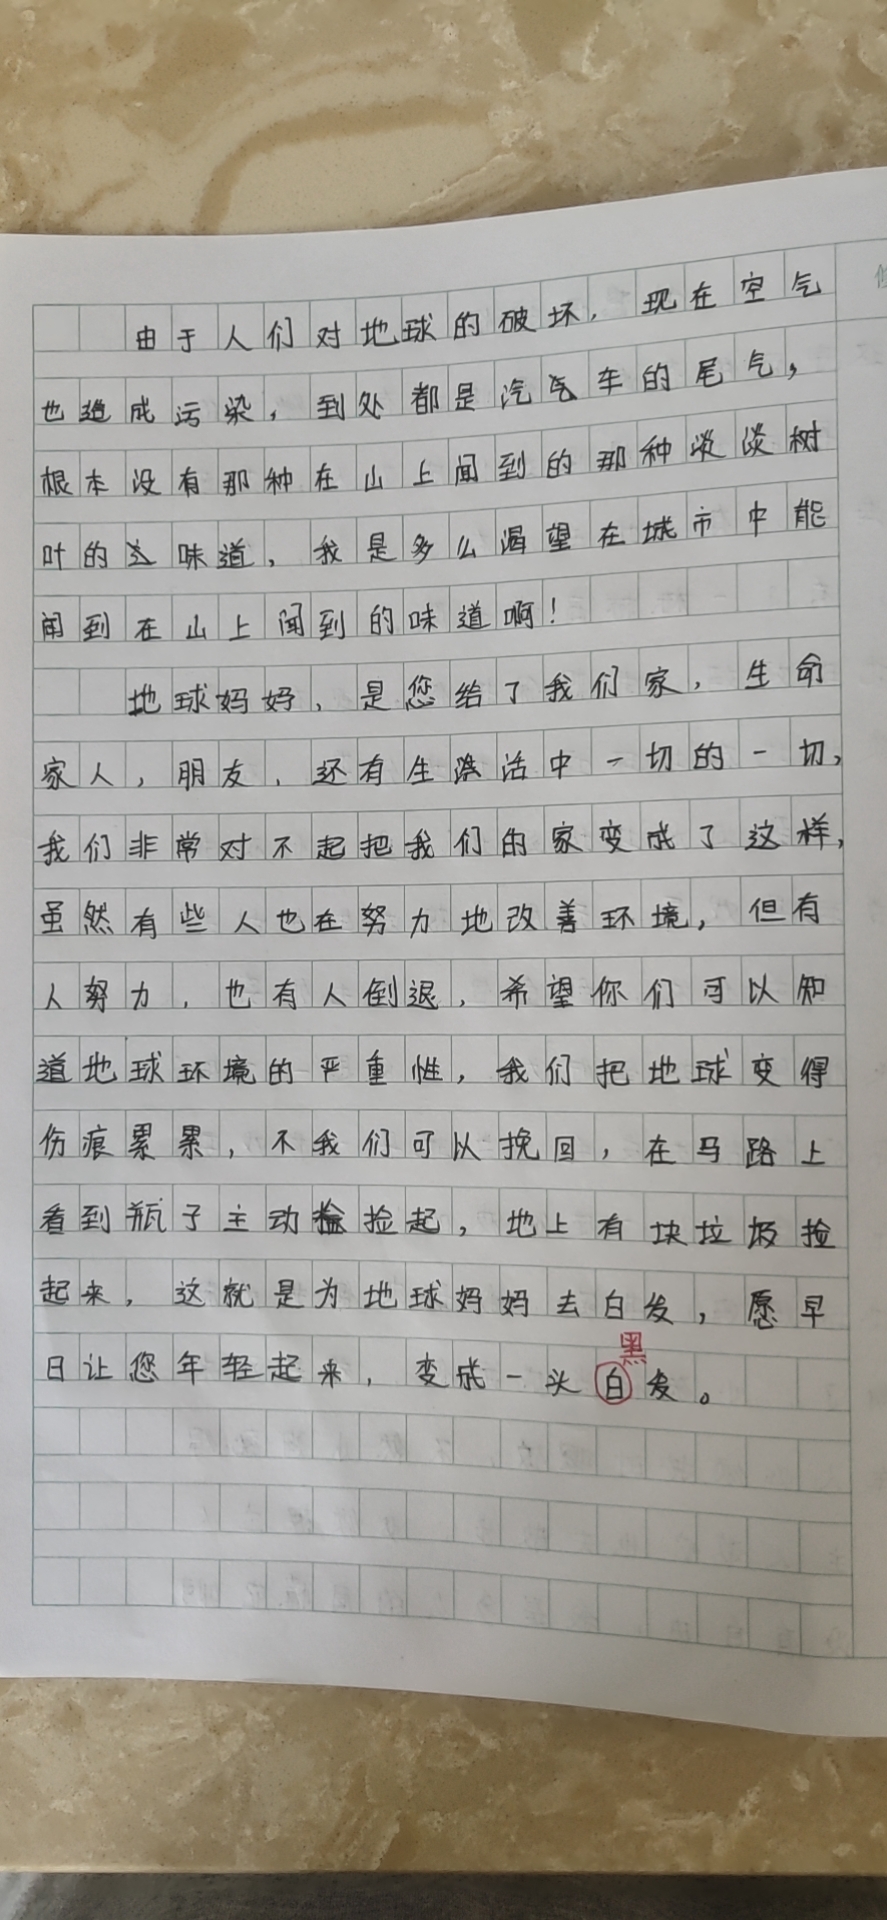 由于人们对地球的破坏，现在空气
也造成污染，到处都是汽车的尾气，
根本没有那种在山上闻到的那种淡淡树
叶的味道，我是多么渴望在城市中能
闻到在山上闻到的味道啊！
地球妈妈，是您给了我们家，生命
家人，朋友，还有生活中一切的一切，
我们非常对不起把我们的家变成了这样，
虽然有些人也在努力地改善环境，但有
人努力，也有人倒退，希望你们可以知
道地球环境的严重性，我们把地球变得
伤痕累累，不我们可以挽回，在马路上
看到瓶子主动捡起，地上有块垃圾捡
起来，这就是为地球妈妈去白发，愿早
黑
日让您年轻起来，变成一头白发。